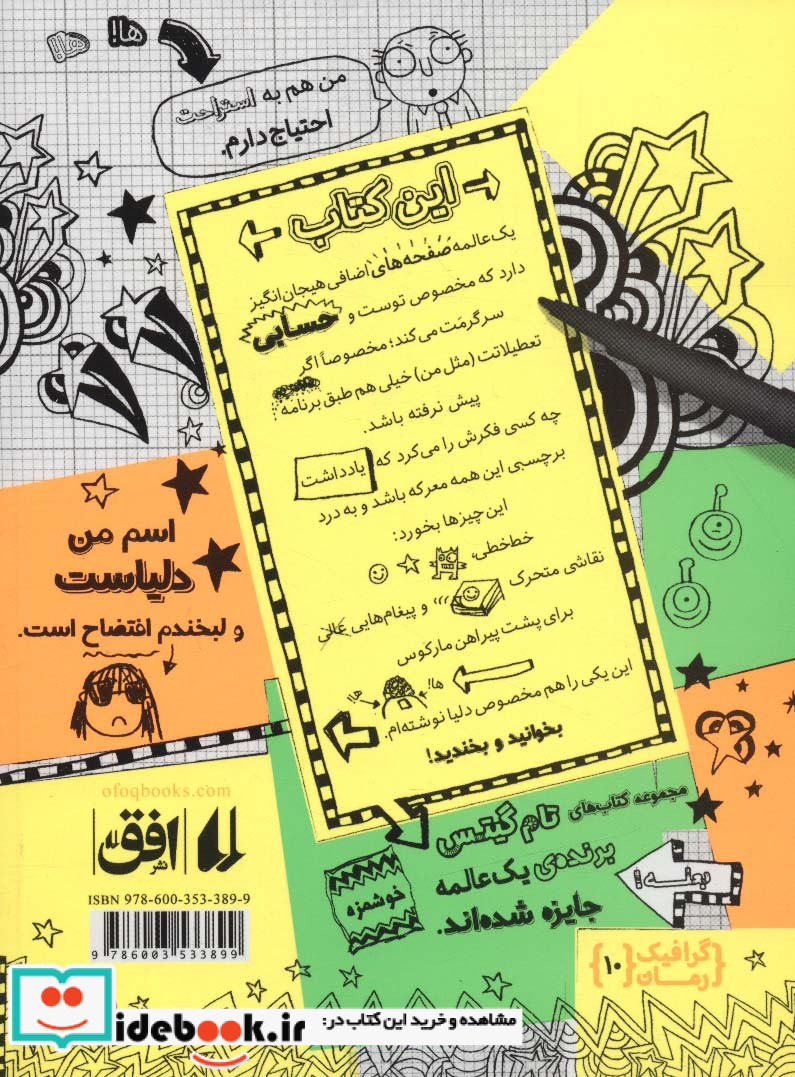 ها!
ها!
من هم به استراحت
احتیاج دارم.
این کتاب
یک عالمه صفحه‌های اضافی هیجان‌انگیز
دارد که مخصوص توست و حسابی
سرگرمت می‌کند؛ مخصوصاً اگر
تعطیلاتت (مثل من) خیلی هم طبق برنامه
پیش نرفته باشد.
چه کسی فکرش را می‌کرد که یادداشت
برچسبی این همه معرکه باشد و به درد
این چیزها بخورد:
خط‌خطی،
نقاشی متحرک و پیغام‌هایی عالی
برای پشت پیراهن مارکوس
ها!
ها!
این یکی را هم مخصوص دلیا نوشته‌ام.
بخوانید و بخندید!
اسم من
دلیاست
و لبخندم افتضاح است.
مجموعه کتاب‌های تام گیتس
برنده‌ی یک عالمه
جایزه شده‌اند.
خوشمزه
بعله!
ofoqbooks.com
نشر افق
ISBN 978-600-353-389-9
9 786003 533899
گرافیک
رمان
۱۰
مشاهده و خرید این کتاب در:
idebook.ir